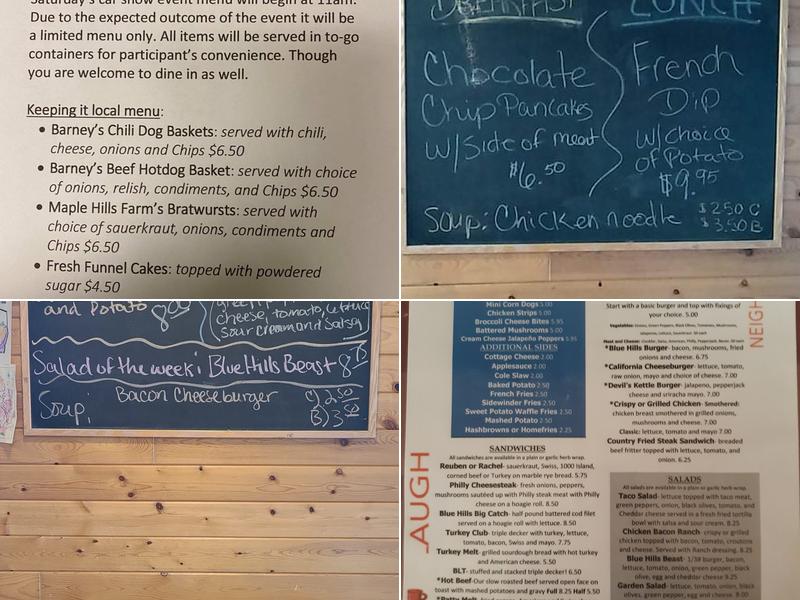 Saturday's car show event menu will begin at 11am.
Due to the expected outcome of the event it will be
a limited menu only. All items will be served in to-go
containers for participant's convenience. Though
you are welcome to dine in as well.
Keeping it local menu:
• Barney's Chili Dog Baskets: served with chili,
cheese, onions and Chips $6.50
• Barney's Beef Hotdog Basket: served with choice
of onions, relish, condiments, and Chips $6.50
• Maple Hills Farm's Bratwursts: served with
choice of sauerkraut, onions, condiments and
Chips $6.50
• Fresh Funnel Cakes: topped with powdered
sugar $4.50
BREAKFAST
Chocolate
Chip Pancakes
w/Side of meat
$6.50
LUNCH
French
Dip
w/choice
of Potato
$9.95
Soup: Chicken noodle $2.50 C
$3.50 B
and Potato 8.00
cheese, tomato, lettuce
sour cream and salsa
Salad of the week: Blue Hills Beast 8.75
Soup: Bacon Cheeseburger C) 2.50
B) 3.50
LAUGH
Mini Corn Dogs 5.00
Chicken Strips 5.00
Broccoli Cheese Bites 5.95
Battered Mushrooms 5.00
Cream Cheese Jalapeño Poppers 5.95
ADDITIONAL SIDES
Cottage Cheese 2.00
Applesauce 2.00
Cole Slaw 2.00
Baked Potato 2.50
French Fries 2.50
Sidewinder Fries 2.50
Sweet Potato Waffle Fries 2.50
Mashed Potato 2.50
Hashbrowns or Homefries 2.25
SANDWICHES
All sandwiches are available in a plain or garlic herb wrap.
Reuben or Rachel- sauerkraut, Swiss, 1000 Island,
corned beef or Turkey on marble rye bread. 5.75
Philly Cheesesteak- fresh onions, peppers,
mushrooms sautéed up with Philly steak meat with Philly
cheese on a hoagie roll. 8.50
Blue Hills Big Catch- half pound battered cod filet
served on a hoagie roll with lettuce. 8.50
Turkey Club- triple decker with turkey, lettuce,
tomato, bacon, Swiss and mayo. 7.75
Turkey Melt- grilled sourdough bread with hot turkey
and American cheese. 5.50
BLT- stuffed and stacked triple decker! 6.50
*Hot Beef-Our slow roasted beef served open face on
toast with mashed potatoes and gravy Full 8.25 Half 5.50
NEIGH
Start with a basic burger and top with fixings of
your choice. 5.00
*Blue Hills Burger- bacon, mushrooms, fried
onions and cheese. 6.75
*California Cheeseburger- lettuce, tomato,
raw onion, mayo and choice of cheese. 7.00
*Devil's Kettle Burger- jalapeno, pepperjack
cheese and sriracha mayo. 7.00
*Crispy or Grilled Chicken- Smothered:
chicken breast smothered in grilled onions,
mushrooms and cheese. 7.00
Classic: lettuce, tomato and mayo 7.00
Country Fried Steak Sandwich- breaded
beef fritter topped with lettuce, tomato, and
onion. 6.25
SALADS
All salads are available in a plain or garlic herb wrap.
Taco Salad- lettuce topped with taco meat,
green peppers, onion, black olives, tomato, and
Cheddar cheese served in a fresh fried tortilla
bowl with salsa and sour cream. 8.25
Chicken Bacon Ranch- crispy or grilled
chicken topped with bacon, tomato, croutons
and cheese. Served with Ranch dressing. 8.25
Blue Hills Beast- 1/3# burger, bacon,
lettuce, tomato, onion, green pepper, black
olive, egg and cheddar cheese 9.25
Garden Salad- lettuce, tomato, onion, black
olives, green pepper, egg and cheese. 8.00